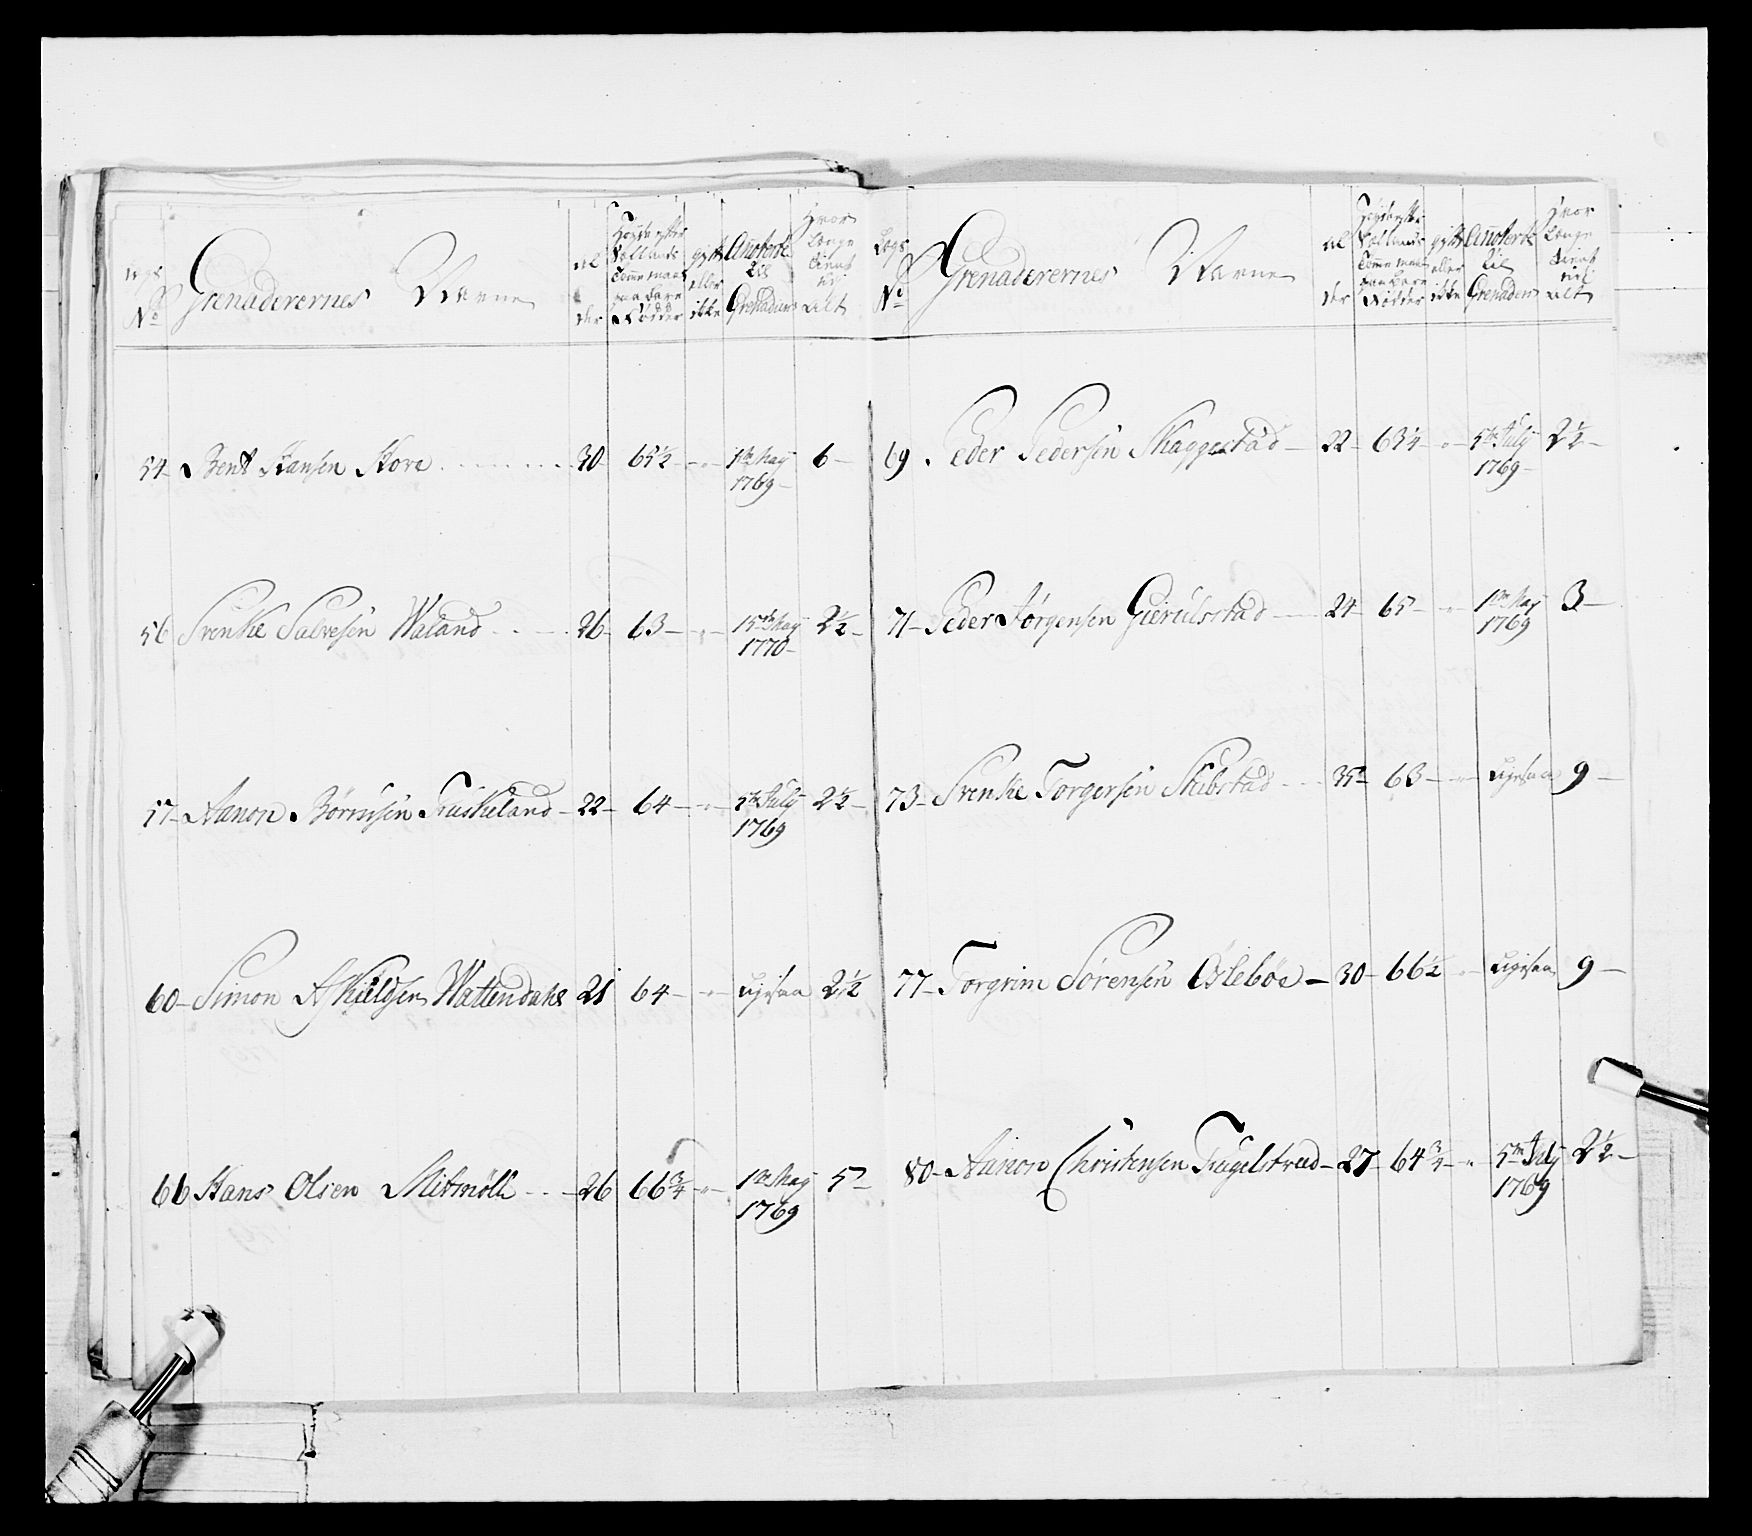 Legs No
Grenaderernes Navne
Alder
Høyde efter Siellands Tomme maal paa bare Fødder
gift eller ikke
Anoterte til Grenaderer
Hvor Længe tient udi alt
54 Bent Hansen Hore 30 65½ 1te May 1769 6
56 Svenke Salvesen Waland 26 63 15de May 1770 2½
57 Aanon Børresen Fuskeland 22 64 5te July 1769 2½
60 Simon Askieldsen Wattendahl 21 64 ligesaa 2½
66 Hans Olsen Skitmølle 26 66¾ 1te May 1769 5
Legs No
Grenaderernes Navne
Alder
Høyde efter Siellands Tomme maal paa bare Fødder
gift eller ikke
Anoterte til Grenaderer
Hvor Længe tient udi alt
69 Peder Pedersen Skaggestad 22 63¼ 5te July 1769 2½
71 Peder Jørgensen Gierulsstad 24 65 1te May 1769 3
73 Svenke Torgersen Skibstad 35 63 ligesaa 9
77 Torgrim Sørensen Øslebøe 30 66½ ligesaa 9
80 Aanon Christensen Fugelstvad 27 64¾ 5te July 1769 2½